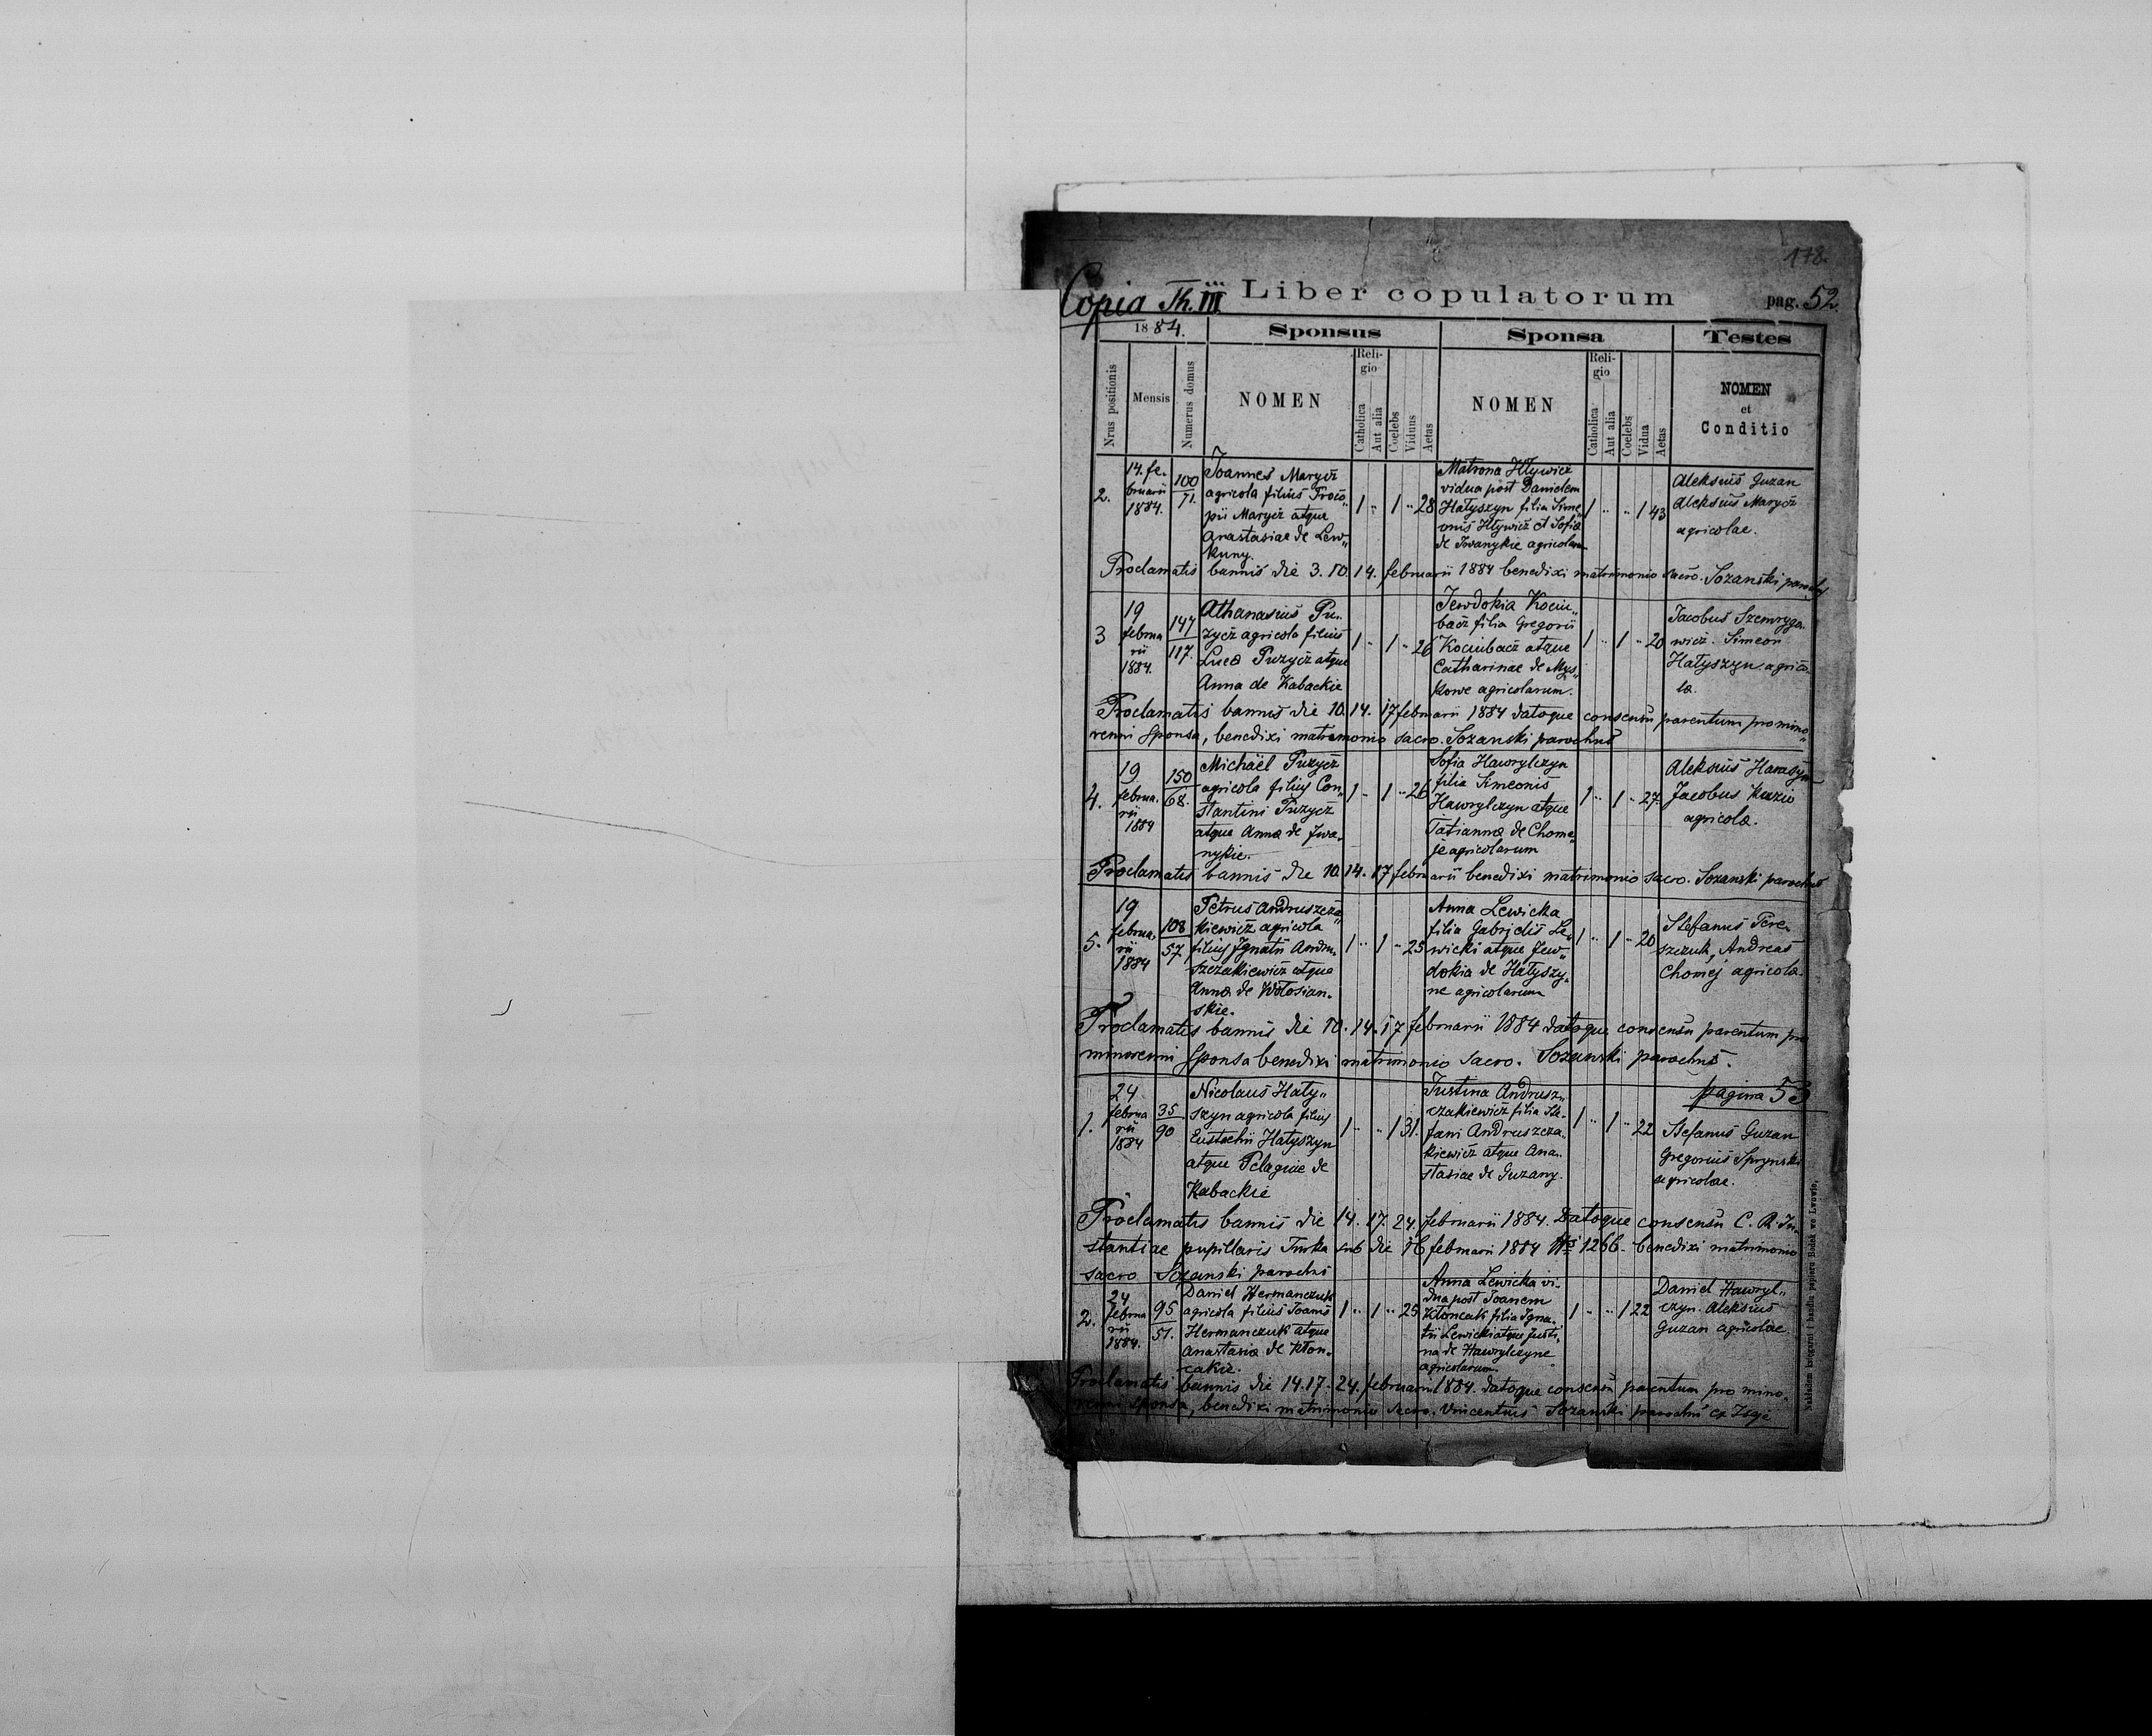 178.
Copia Th. III Liber copulatorum pag. 52
1884. Sponsus Sponsa Testes
Nrus positionis
Mensis
Numerus domus
NOMEN
Religio
Catholica
Aut alia
Coelebs
Viduus
Aetas
NOMEN
Religio
Catholica
Aut alia
Coelebs
Vidua
Aetas
NOMEN
et
Conditio
2.
14. fe-
bruarii
1884.
100
71.
Joannes Marycz
agricola filius Proco„
pii Marycz atque
Anastasiae de Lew„
kuny.
1 „ 1 „ 28
Matrona Hlywicz
vidua post Danielem
Hatyszyn filia Sime„
onis Hlywicz et Sofia
de Iwanykie agricolarum
1 „ „ 1 43
Aleksius Guzan
Aleksius Marycz
agricolae.
Proclamatis bannis die 3. 10. 14. februarii 1884 benedixi matrimonio sacro. Sozanski parochus
3
19
februa
rii
1884.
147
117.
Athanasius Pu„
zycz agricola filius
Lucae Puzycz atque
Anna de Kabackie
1 „ 1 „ 26
Jewdokia Kociu„
bacz filia Gregorii
Kociubacz atque
Catharinae de Mys„
kowe agricolarum.
1 „ 1 „ 20
Jacobus Szemryga„
wicz. Simeon
Hatyszyn agrico„
lae.
Proclamatis bannis die 10. 14. 17 februarii 1884 datoque consensu parentum pro mino„
renni sponsa, benedixi matrimonio sacro. Sozanski parochus
4.
19
februa.
rii
1884
150
68.
Michaël Puzycz
agricola filius Con„
stantini Puzycz
atque Annae de Iwa„
nykie.
1 „ 1 „ 26
Sofia Hawrylczyn
filia Simeonis
Hawrylczyn atque
Tatiannae de Chome„
je agricolarum
1 „ 1 „ 27.
Aleksius Harasym
Jacobus Kuzio
agricolae.
Proclamatis bannis die 10. 14. 17 februarii benedixi matrimonio sacro. Sozanski parochus
5.
19
februa.
rii
1884
108
57
Petrus Andruszcza„
kiewicz agricola
filius Ignatii Andru„
szczakiewicz atque
Annae de Wolosian„
skie.
1 „ 1 „ 25
Anna Lewicka
filia Gabrielis Le„
wicki atque Jew„
dokia de Hatyszy„
ne agricolarum
1 „ 1 „ 20
Stefanus Tere„
szczuk, Andreas
Chomej agricolae.
Proclamatis bannis die 10. 14. 17 februarii 1884 datoque consensu parentum pro
minorenni sponsa benedixi matrimonio sacro. Sozanski parochus.
pagina 53
1.
24
februa
rii
1884
35
90
Nicolaus Haty„
szyn agricola filius
Eustachii Hatyszyn
atque Pelagiae de
Kabackie
1 „ „ 1 31.
Justina Andrusz„
czakiewicz filia Ste„
fani Andruszcza„
kiewicz atque Ana„
stasiae de Guzany.
1 „ 1 „ 22
Stefanus Guzan
Gregorius Sprynski
agricolae.
Proclamatis bannis die 14. 17. 24. februarii 1884. Datoque consensu C. R. In„
stantiae pupillaris Turka sub die 16 februarii 1884 Nro 1266. benedixi matrimonio
sacro Sozanski parochus
2.
24
februa
rii
1884.
95
51.
Daniel Hermanczuk
agricola filius Joannis
Hermanczuk atque
Anastasia de Klon„
cakie.
1 „ 1 „ 25
Anna Lewicka vi„
dua post Joanem
Kloncak filia Igna„
tii Lewicki atque Justi„
na de Hawrylczyne
agricolarum.
1 „ „ 1 22
Daniel Hawryl„
czyn. Aleksius
Guzan agricolae
Proclamatis bannis die 14. 17. 24. februarii 1884. datoque consensu parentum pro mino„
renni sponsa, benedixi matrimonio sacro. Vincentius Sozanski parochus
Nakładem księgarni i handlu papieru Bodek we Lwowie,